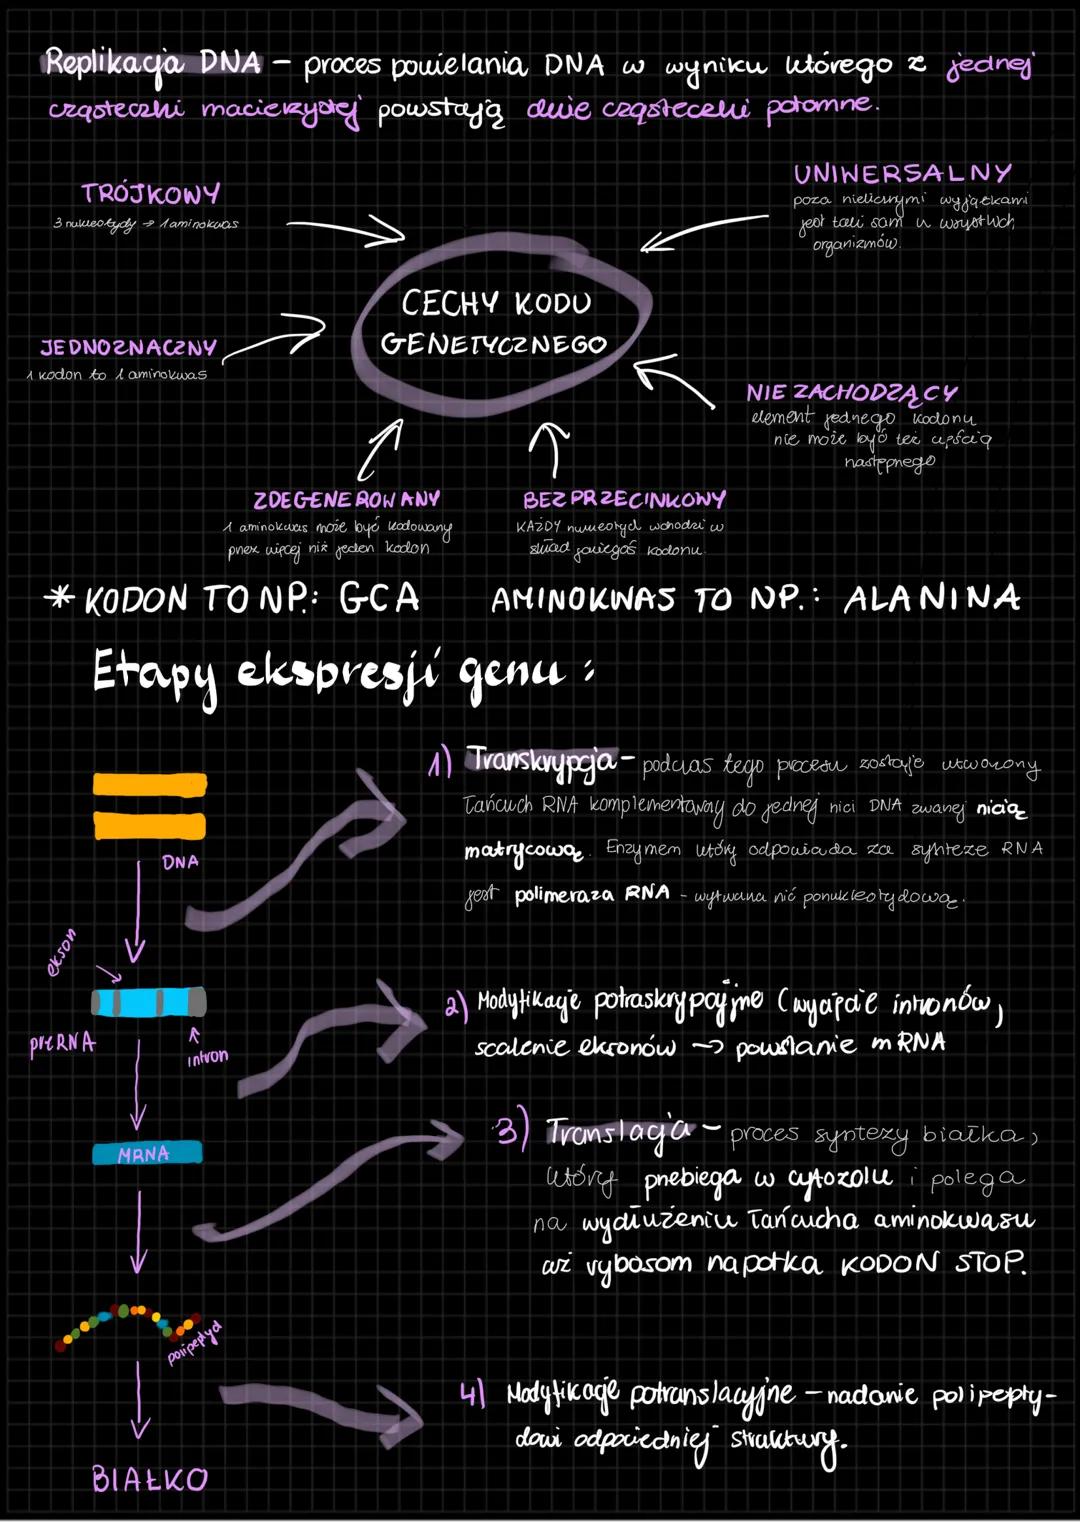 Replikacja DNA – proces powielania DNA w wyniku którego z jednej
cząsteczki macierzystej powstają dwie cząsteczki potomne.
TRÓJKOWY
3 nukleotydy → 1 aminokwas
UNIWERSALNY
poza nielicznymi wyjątkami
jest taki sam u wszystkich
organizmów.
CECHY KODU
GENETYCZNEGO
JEDNOZNACZNY
1 kodon to 1 aminokwas
NIE ZACHODZĄCY
element jednego kodonu
nie może być też częścią
następnego
ZDEGENEROWANY
1 aminokwas może być kodowany
przez więcej niż jeden kodon
BEZPRZECINKOWY
KAŻDY nukleotyd wchodzi w
skład jakiegoś kodonu.
* KODON TO NP.: GCA AMINOKWAS TO NP.: ALANINA
Etapy ekspresji genu :
1) Transkrypcja – podczas tego procesu zostaje utworzony
łańcuch RNA komplementarny do jednej nici DNA zwanej nicią
matrycową. Enzymem który odpowiada za syntezę RNA
jest polimeraza RNA - wytwarza nić ponukleotydową.
DNA
ekson
preRNA
intron
2) Modyfikacje potraskrypcyjne (wycięcie intronów,
scalenie eksonów → powstanie mRNA
MRNA
3) Translacja – proces syntezy białka,
który przebiega w cytozolu i polega
na wydłużeniu łańcucha aminokwasu
aż rybosom napotka KODON STOP.
polipeptyd
4) Modyfikacje potranslacyjne – nadanie polipepty-
dowi odpowiedniej struktury.
BIAŁKO